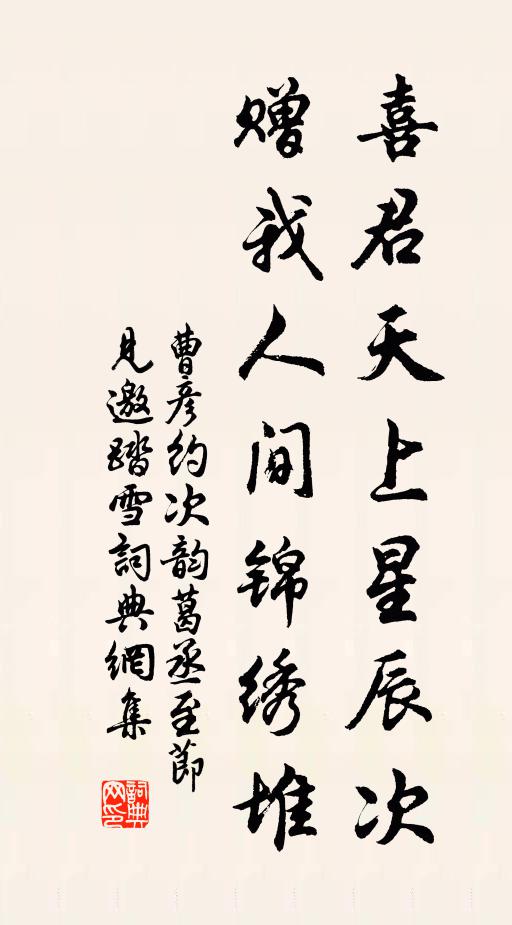 喜君天上星辰次
赠我人间锦绣堆
曹彦约次韵葛丞至節
見邀踏雪詞典網集
詞典
网印